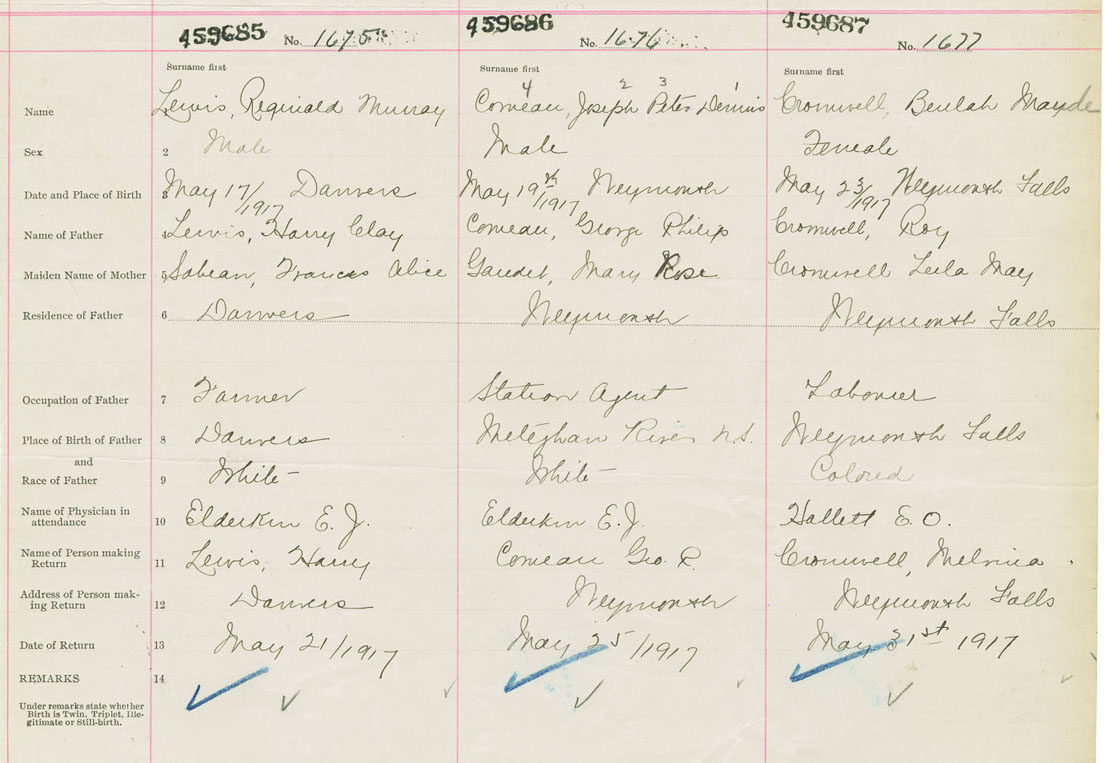 459685 No. 1675 459686 No. 1676 459687 No. 1677
Surname first Surname first Surname first
4 2 3 1
Name 1 Lewis, Reginald Murray Comeau, Joseph Peter Dennis Cromwell, Beulah Mayde
Sex 2 Male Male Female
Date and Place of Birth 3 May 17/1917 Danvers May 19th/1917 Weymouth May 23/1917 Weymouth Falls
Name of Father 4 Lewis, Harry Clay Comeau, George Philip Cromwell, Roy
Maiden Name of Mother 5 Sabean, Frances Alice Gaudet, Mary Rose Cromwell Leila May
Residence of Father 6 Danvers Weymouth Weymouth Falls
Occupation of Father 7 Farmer Station Agent Labourer
Place of Birth of Father 8 Danvers Meteghan River N.S. Weymouth Falls
and
Race of Father 9 White White Colored
Name of Physician in attendance 10 Elderkin E. J. Elderkin E. J. Hallett E. O.
Name of Person making Return 11 Lewis, Harry Comeau Geo. P. Cromwell, Melvina
Address of Person making Return 12 Danvers Weymouth Weymouth Falls
Date of Return 13 May 21/1917 May 25/1917 May 31st 1917
REMARKS 14
Under remarks state whether
Birth is Twin, Triplet, Ille-
gitimate or Still-birth.